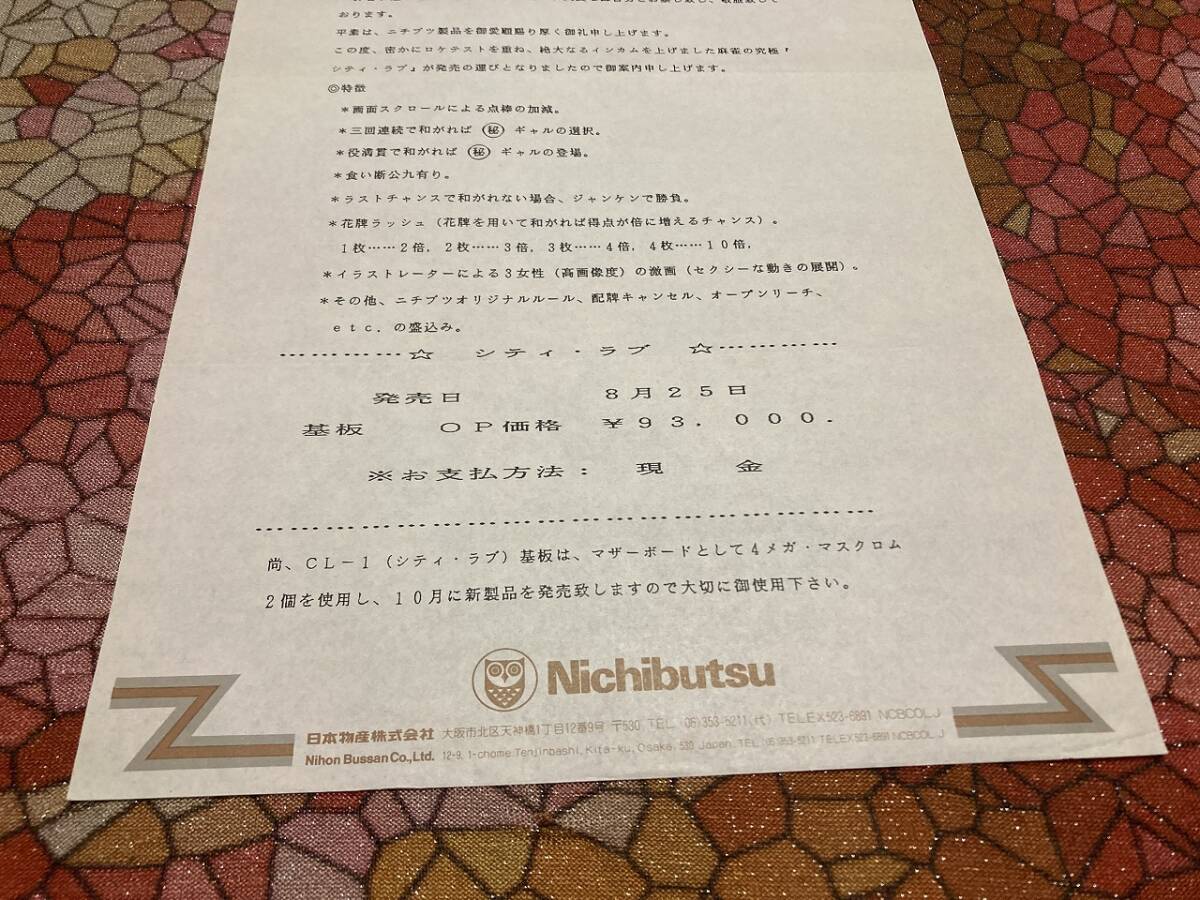 おります。
平素は、ニチブツ製品を御愛顧賜り厚く御礼申し上げます。
この度、密かにロケテストを重ね、絶大なるインカムを上げました麻雀の究極『
シティ・ラブ』が発売の運びとなりましたので御案内申し上げます。
◎特徴
*画面スクロールによる点棒の加減。
*三回連続で和がれば ㊙ ギャルの選択。
*役満貫で和がれば ㊙ ギャルの登場。
*食い断公九有り。
*ラストチャンスで和がれない場合、ジャンケンで勝負。
*花牌ラッシュ(花牌を用いて和がれば得点が倍に増えるチャンス)。
1枚……2倍, 2枚……3倍, 3枚……4倍, 4枚……10倍,
*イラストレーターによる3女性(高画像度)の激画(セクシーな動きの展開)。
*その他、ニチブツオリジナルルール、配牌キャンセル、オープンリーチ、
etc. の盛込み。
…………☆ シティ・ラブ ☆…………
発売日 8月25日
基板 OP価格 ¥93.000.
※お支払方法: 現 金
尚、CL-1(シティ・ラブ)基板は、マザーボードとして4メガ・マスクロム
2個を使用し、10月に新製品を発売致しますので大切に御使用下さい。
Nichibutsu
日本物産株式会社 大阪市北区天神橋1丁目12番9号 〒530 TEL (06)353-5211(代) TELEX523-6891 NCBCOL J
Nihon Bussan Co.,Ltd. 12-9, 1-chome Tenjinbashi, Kita-ku, Osaka, 530 Japan. TEL (06)353-5211 TELEX523-6891 NCBCOL J